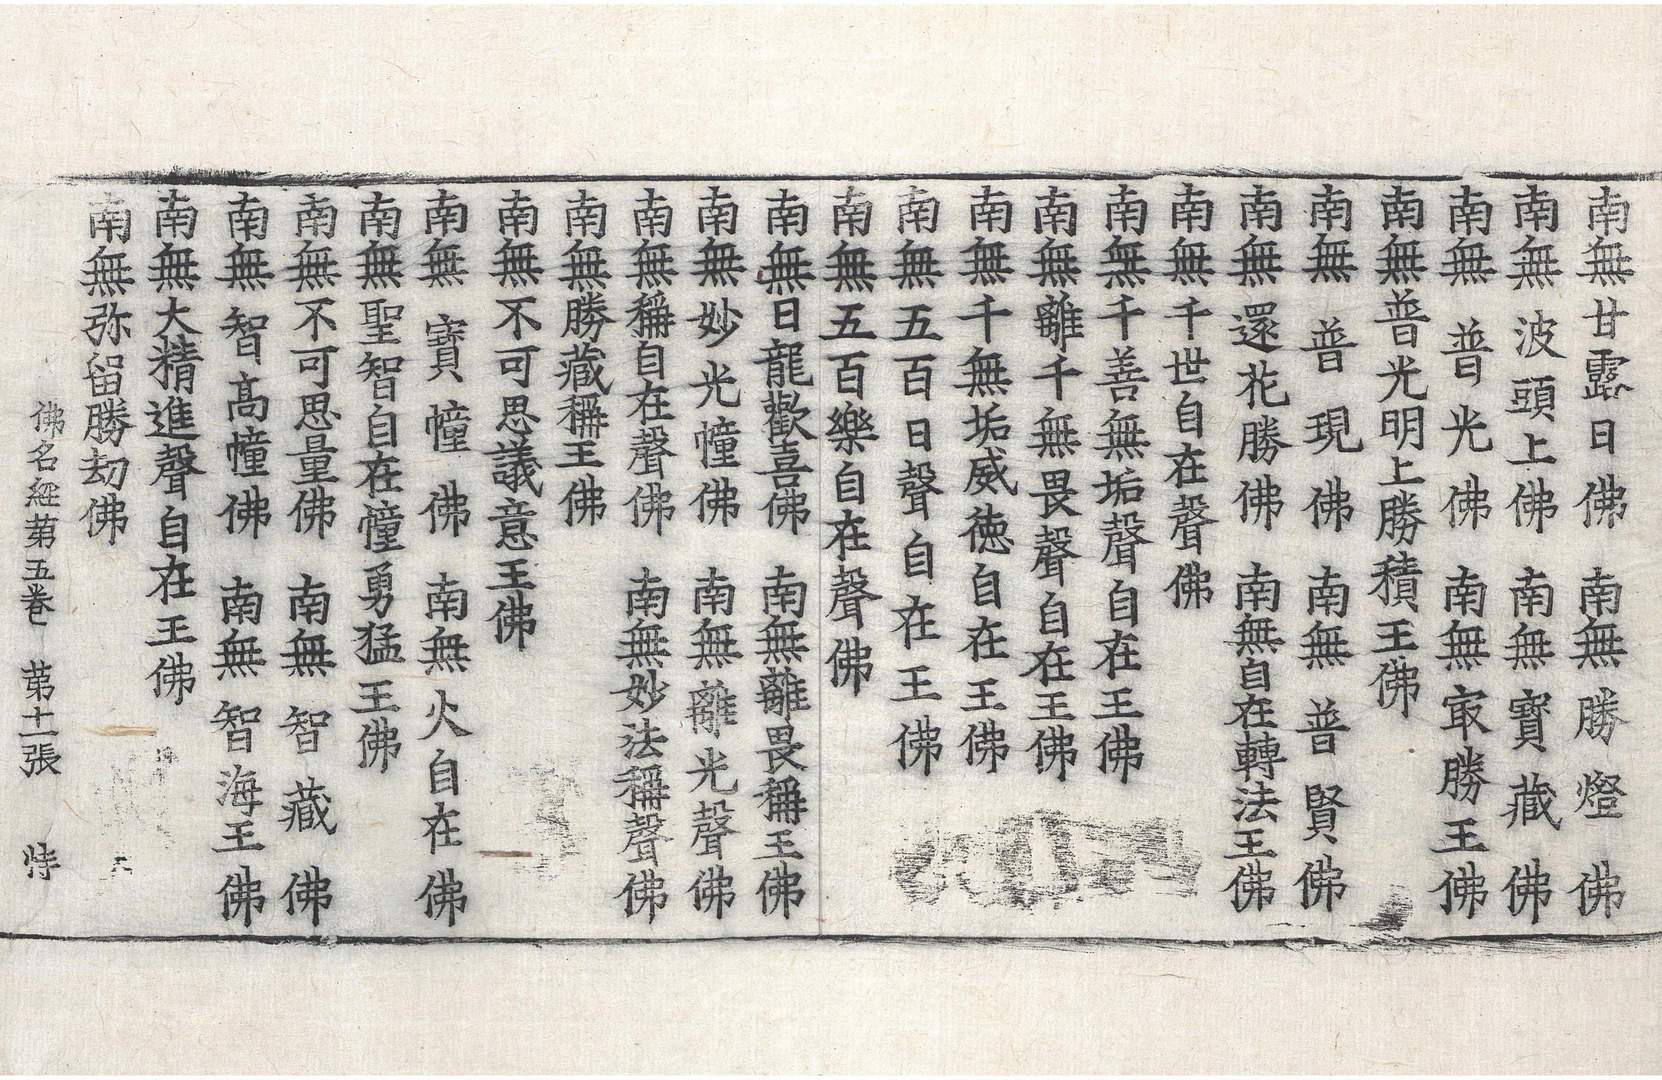 南無甘露日佛　南無勝燈佛
南無波頭上佛　南無寶藏佛
南無普光佛　南無㝡勝王佛
南無普光明上勝積王佛
南無普現佛　南無普賢佛
南無還花勝佛　南無自在轉法王佛
南無千世自在聲佛
南無千善無垢聲自在王佛
南無離千無畏聲自在王佛
南無千無垢威德自在王佛
南無五百日聲自在王佛
南無五百樂自在聲佛
南無日龍歡喜佛　南無離畏稱王佛
南無妙光幢佛　南無離光聲佛
南無稱自在聲佛　南無妙法稱聲佛
南無勝藏稱王佛
南無不可思議意王佛
南無寶幢佛　南無火自在佛
南無聖智自在幢勇猛王佛
南無不可思量佛　南無智藏佛
南無智高幢佛　南無智海王佛
南無大精進聲自在王佛
南無弥留勝劫佛
佛名經第五卷　第十一張　恃